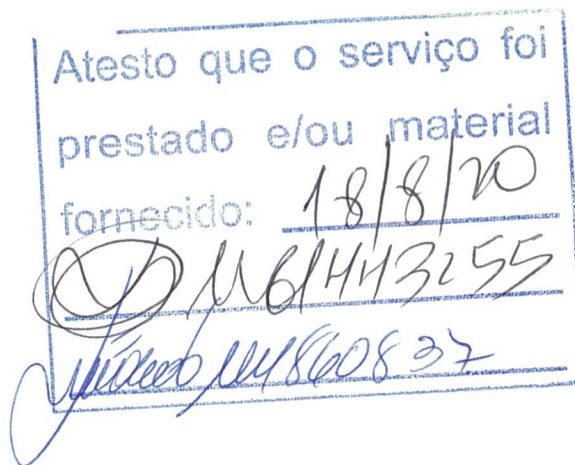 Atesto que o serviço foi
prestado e/ou material
fornecido: 18/8/20
M61443255
M1860837